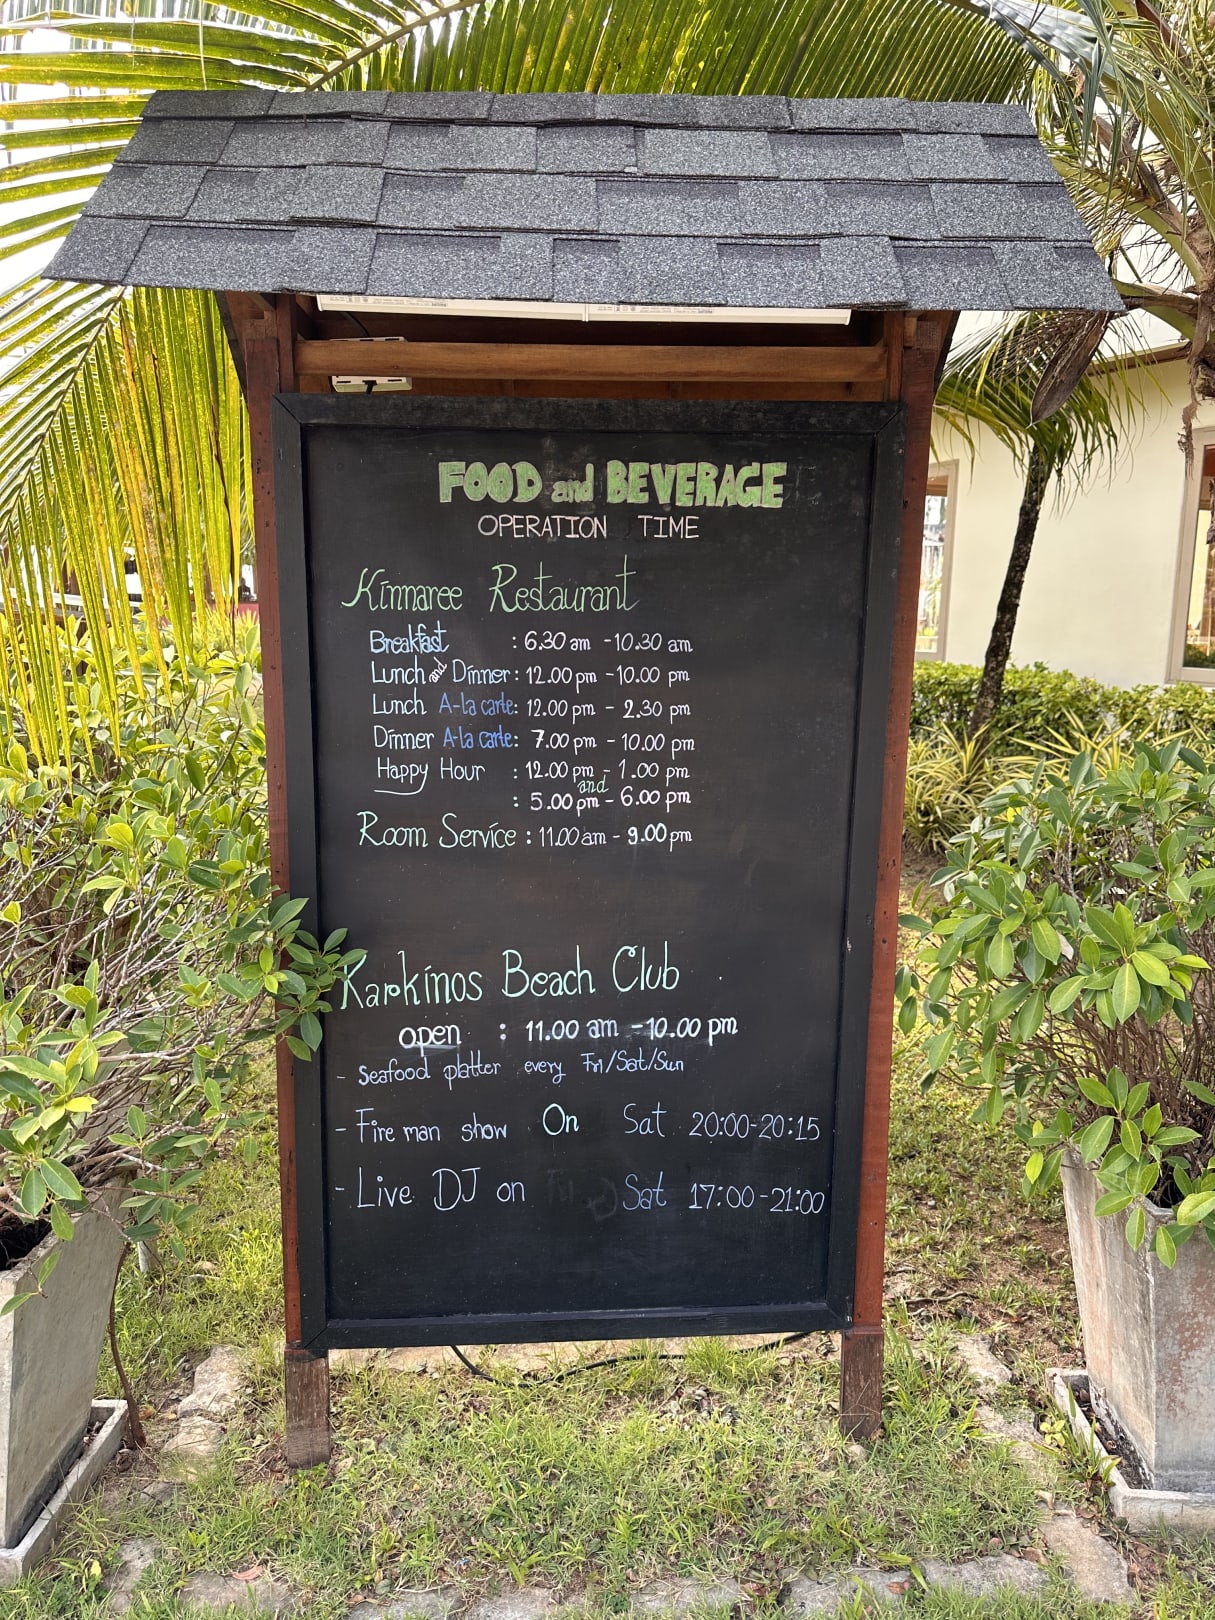 FOOD and BEVERAGE
OPERATION TIME
Kinnaree Restaurant
Breakfast : 6.30 am - 10.30 am
Lunch and Dinner : 12.00 pm - 10.00 pm
Lunch A-la carte : 12.00 pm - 2.30 pm
Dinner A-la carte : 7.00 pm - 10.00 pm
Happy Hour : 12.00 pm - 1.00 pm
and
: 5.00 pm - 6.00 pm
Room Service : 11.00 am - 9.00 pm
Karkinos Beach Club
open : 11.00 am - 10.00 pm
- Seafood platter every Fri/Sat/Sun
- Fire man show On Sat 20:00-20:15
- Live DJ on Sat 17:00-21:00